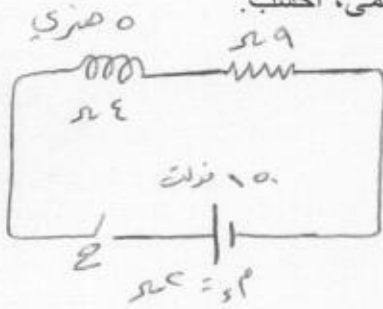 احسب.
٥ هنري
٩ Ω
٤ Ω
١٥٠ فولت
ح
م د = ٢ Ω